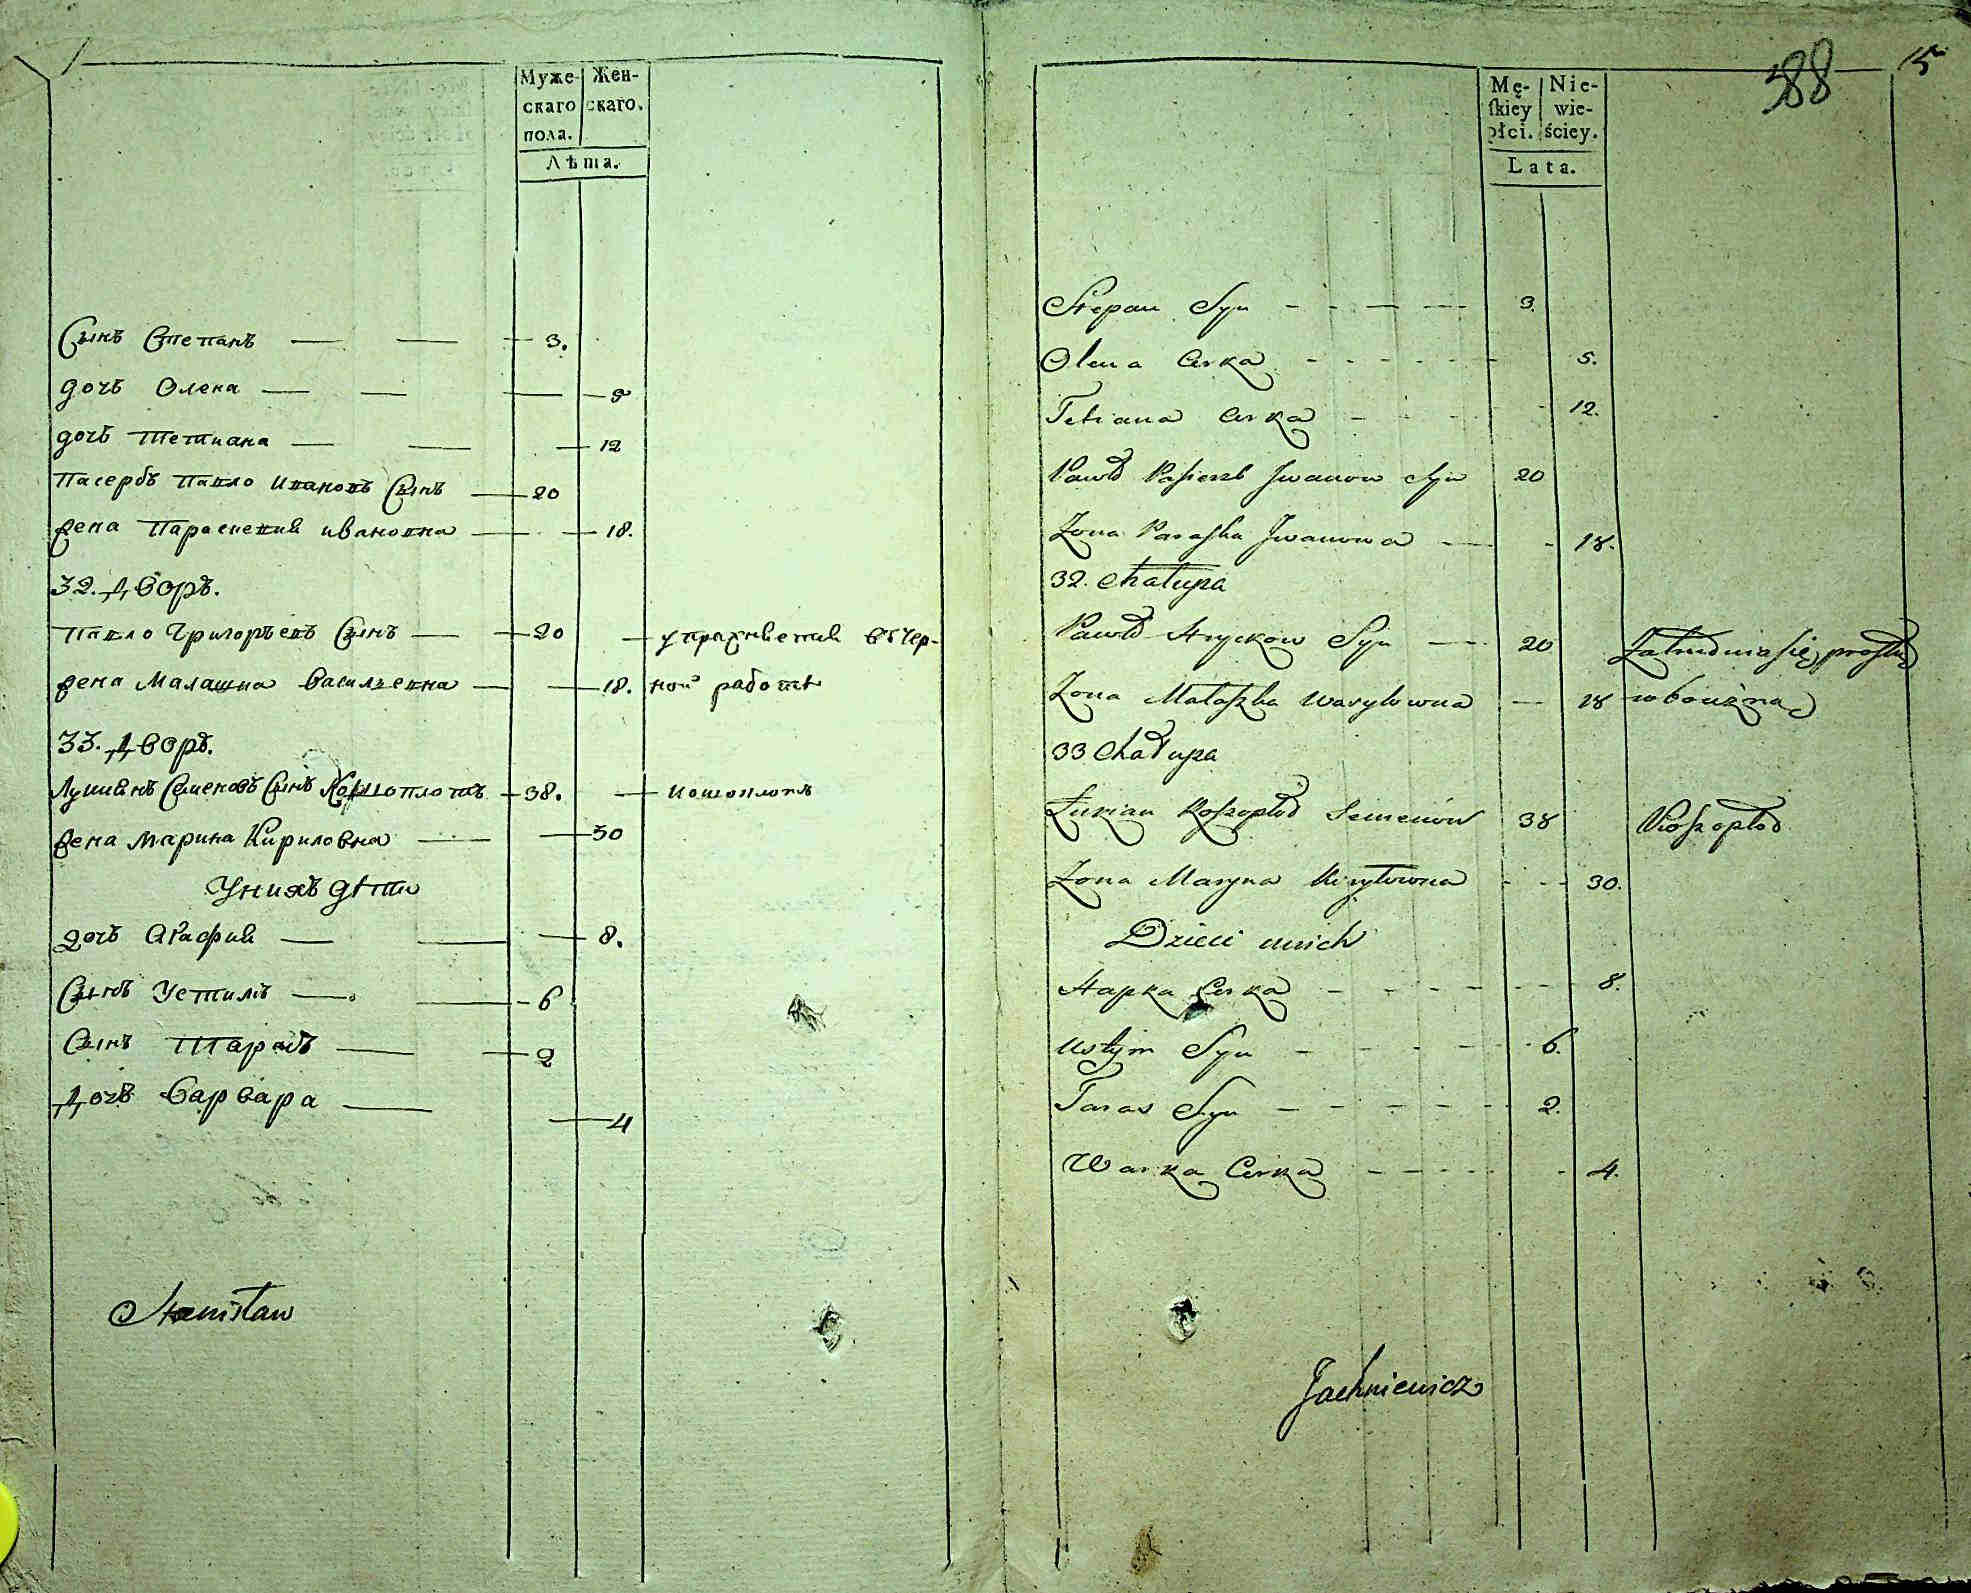 Муже-
скаго
пола.
Жен-
скаго.
Лѣта.
Сынъ Степанъ 3.
дочь Олена 5
дочь Тетиана 12
Пасербъ Павло Ивановъ Сынъ 20
жена Параскевия Ивановна 18.
32. Дворъ.
Павло Григорьевъ Сынъ 20 упражняется въ чер-
жена Малашка Васильевна 18. ной работѣ
33. Дворъ.
Лукиянъ Семеновъ Сынъ Кошоплотъ 38. кошоплотъ
жена Марина Кириловна 30
У нихъ дѣти
дочь Агафия 8.
Сынъ Устимъ 6
Сынъ Тарасъ 2
Дочь Варвара 4
Stanisław
388
15
Mę-
skiey
płci.
Nie-
wie-
ściey.
Lata.
Stepan Syn 3.
Olena Curka 5.
Tetiana Curka 12.
Pawło Pasierb Jwanow Syn 20
Żona Paraska Jwanowa 18.
32. Chałupa
Pawło Hryckow Syn 20 Zatrudnia się prostą
Żona Małaszka Wasylowna 18 robocizną
33 Chałupa
Łukian Koszopłot Semenów 38 Koszopłot
Żona Maryna Kiryłowna 30.
Dzieci unich
Hapka Curka 8.
Ustym Syn 6.
Taras Syn 2.
Warka Curka 4.
Jachniewicz